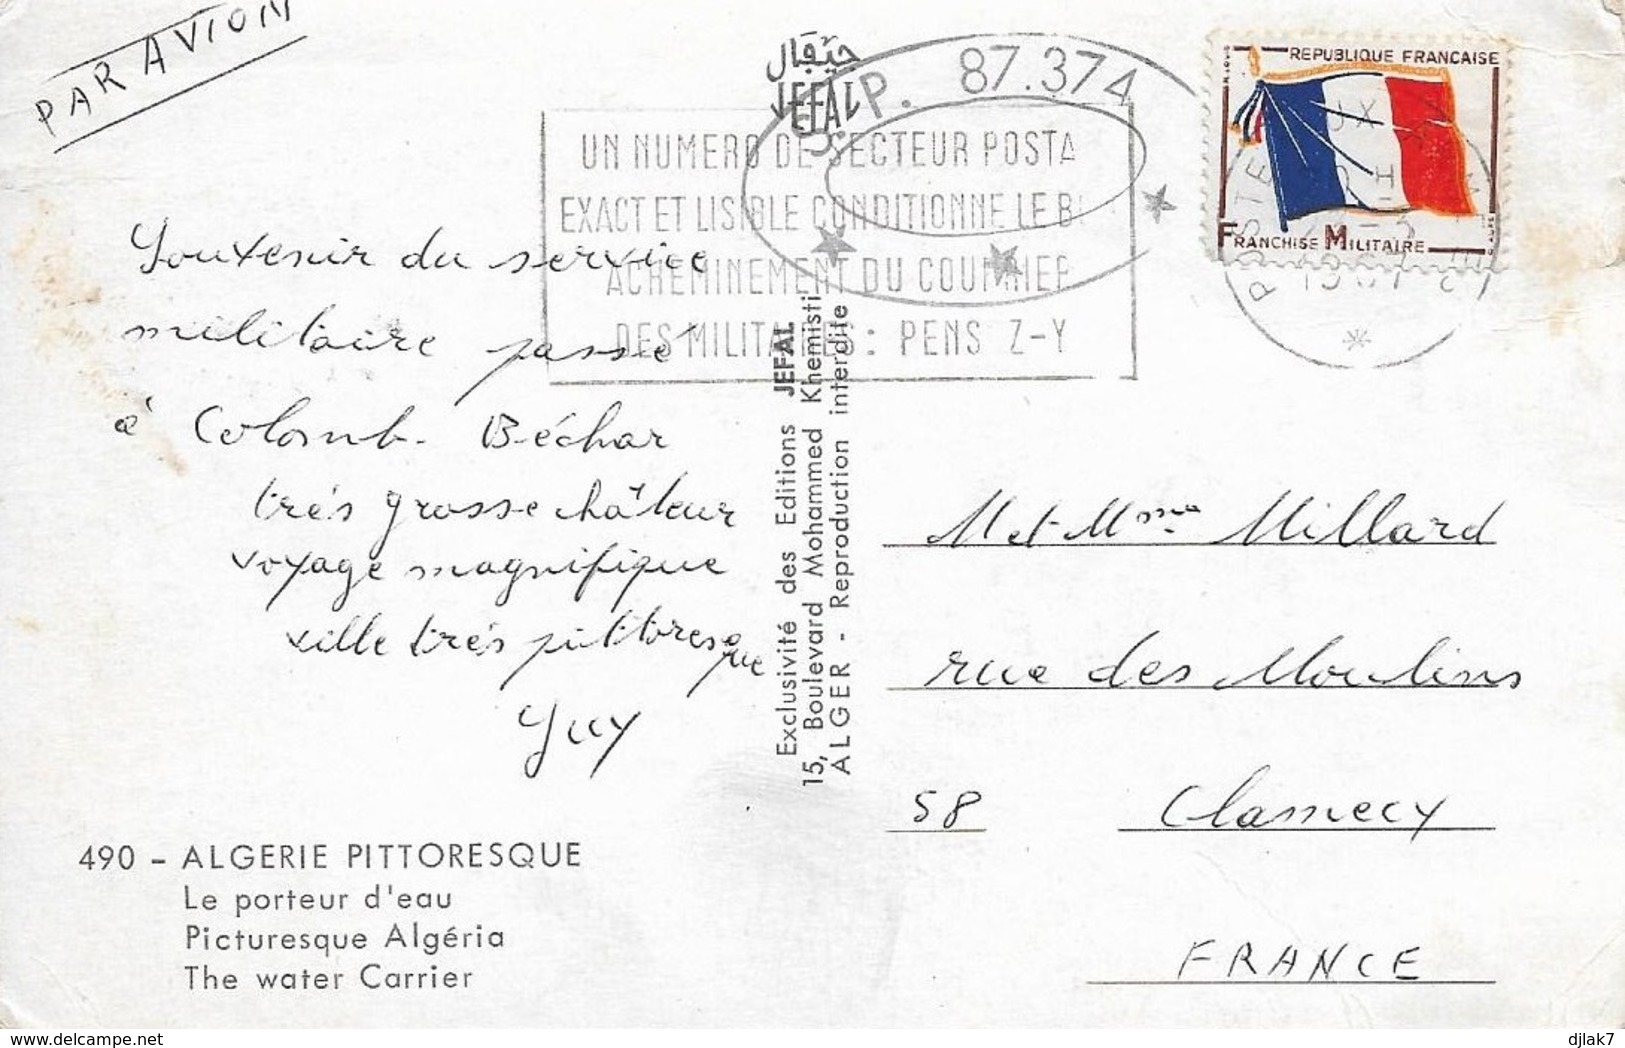 PAR AVION
جيفال
JEFAL
S. P. 87.374
UN NUMERO DE SECTEUR POSTA
EXACT ET LISIBLE CONDITIONNE LE B
ACHEMINEMENT DU COURRIER
DES MILITAIRES : PENS Z-Y
REPUBLIQUE FRANCAISE
FRANCHISE MILITAIRE
Souvenir du service
militaire passé
à Colomb-Béchar
très grosse châleur
voyage magnifique
ville très pittoresque
Guy
Exclusivité des Editions JEFAL
15, Boulevard Mohammed Khemisti
ALGER - Reproduction interdite
M et Mme Millard
rue des Moulins
58 Clamecy
FRANCE
490 - ALGERIE PITTORESQUE
Le porteur d'eau
Picturesque Algéria
The water Carrier
djlak7